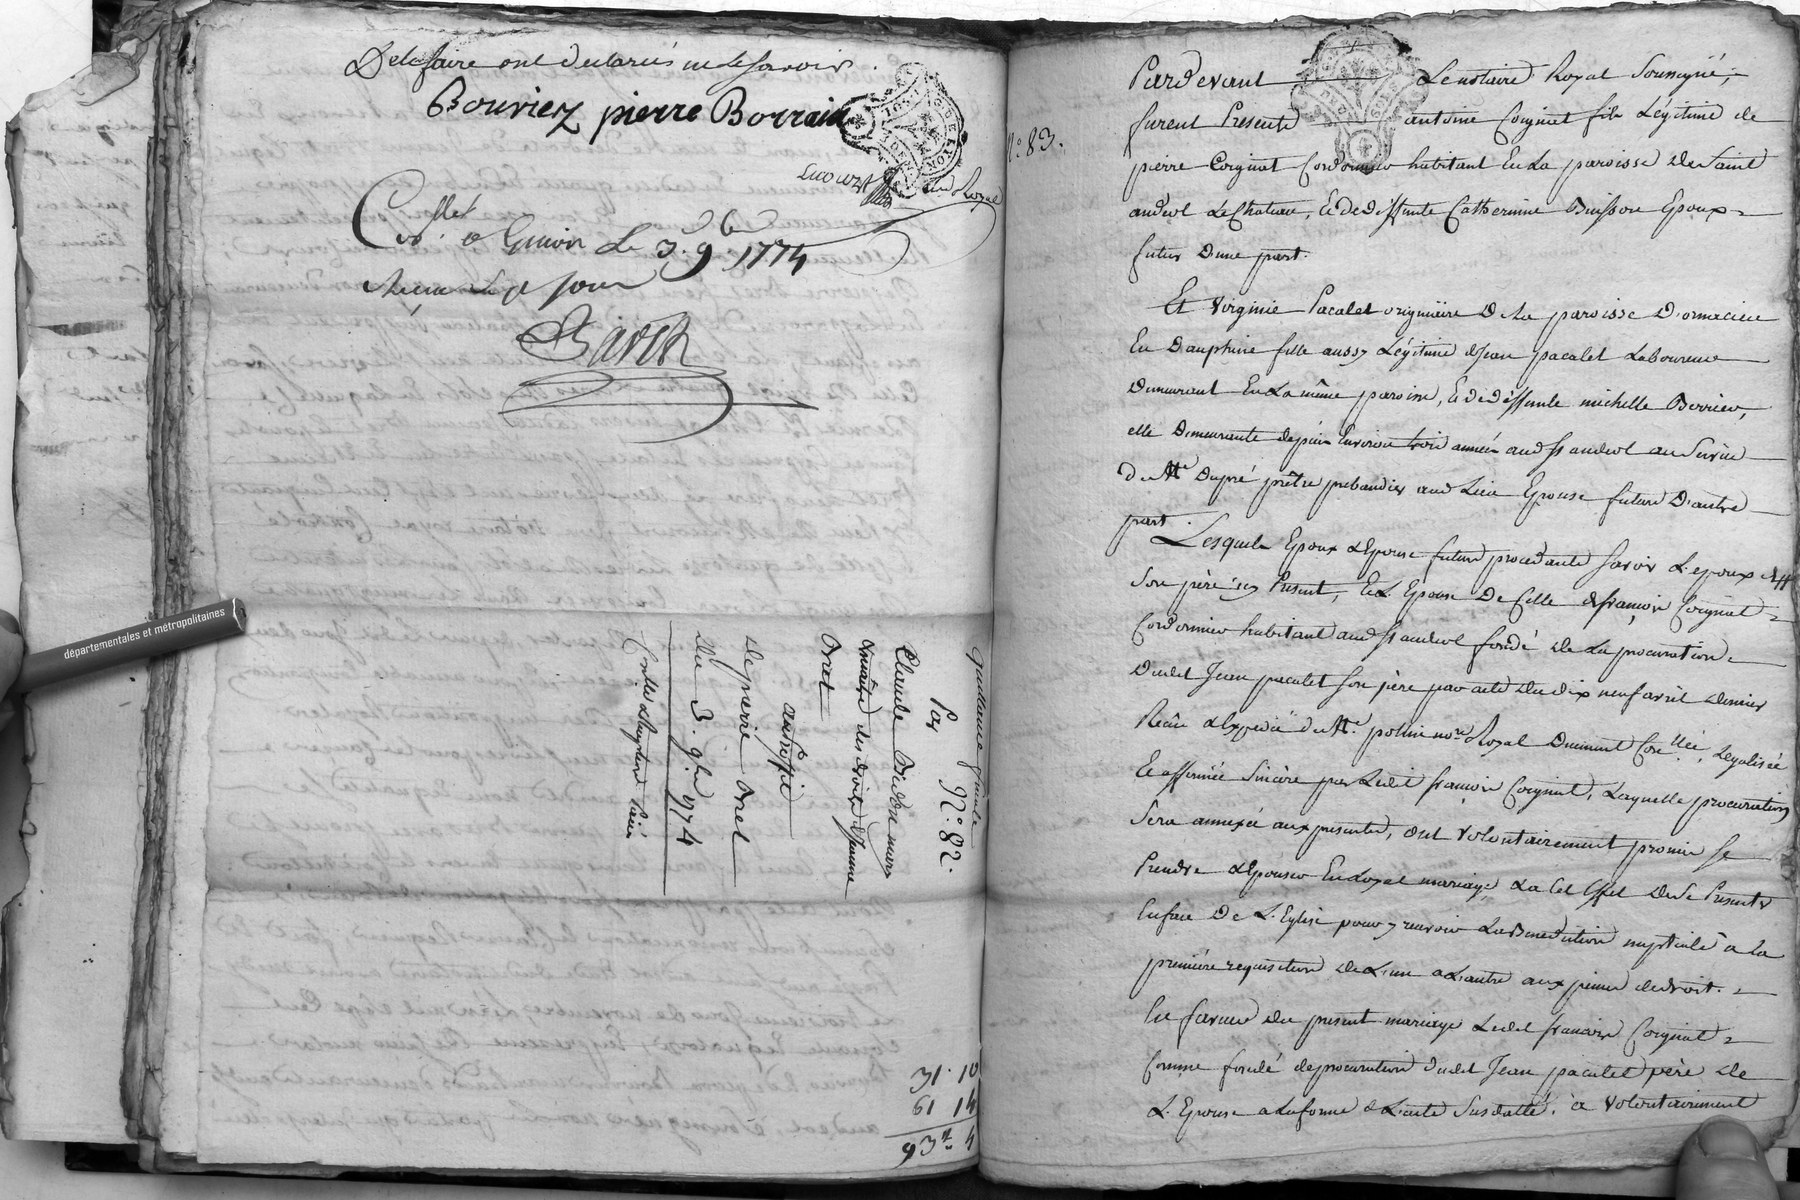 De ce faire ont declarés ne le scavoir.
Bouviez pierre Borrain
not Royal
Collé
a Givors Le 3. 9b 1774
ce jour
quittance finale
N.° 82.
Par
Claude
maitresse des droits
Oriel
au profit
de pierre Oriel
Du 3. 9bre 1774
31. 10
61 14
93 4
départementales et métropolitaines
N.° 83.
Pardevant Le notaire Royal Soussigné,
furent Présents antoine Coignet fils Légitime de
pierre Coignet Cordonnier habitant En La paroisse de Saint
andeol Le Chateau, & de deffunte Catherinne Buisson Epoux
futur d'une part.
Et Virginie Pacalet originaire De La paroisse D'ornacieu
En Dauphiné fille aussy Légitime de Jean pacalet Laboureur
Demeurant En La même paroisse, & de deffunte michelle Berrier,
elle Demeurante depuis Environ trois années aud St andeol au Service
de Mre Dupré prêtre prebandier aud Lieu Epouse future D'autre
part.
Lesquels Epoux & Epouse futurs procedants Savoir L'epoux de
Son père icy Présent, & L'Epouse De Celle de françois Coignet
Cordonnier habitant aud St andeol fondé De La procuration
Dudit Jean pacalet Son père par acte du dix neuf avril dernier
Recûe & Expediée de Me. pollin nore Royal Dûement Conllée, Legalisée
& affirmée Sincère par Ledit françois Coignet, Laquelle procuration
Sera annexée aux presentes, ont volontairement promis Se
Prendre & Epouser En Loyal mariage & a Cet Effet de Se Presenter
En face De L'Eglise pour y recevoir La Benediction nuptiale a la
première requisition de L'un a L'autre aux peines de droit.
En faveur du present mariage Ledit françois Coignet
Comme fondé de procuration dudit Jean pacalet père de
L'Epouse a La forme de L'acte Susdatté, a volontairement